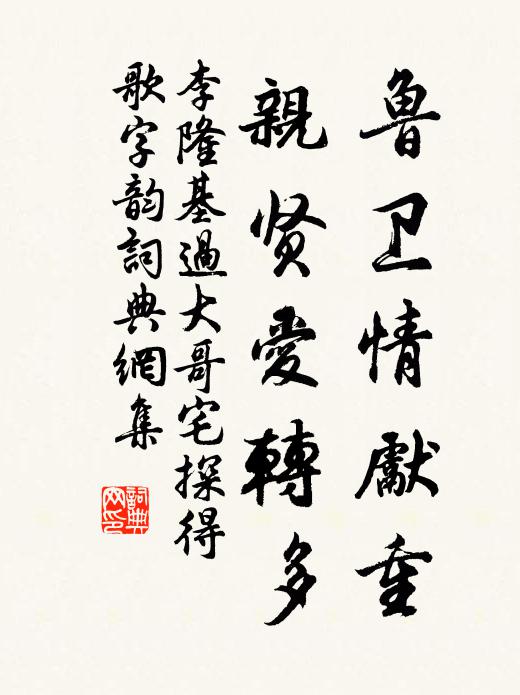 鲁卫情獻重
親贤愛轉多
李隆基過大哥宅探得
歌字韵詞典網集
詞典网印